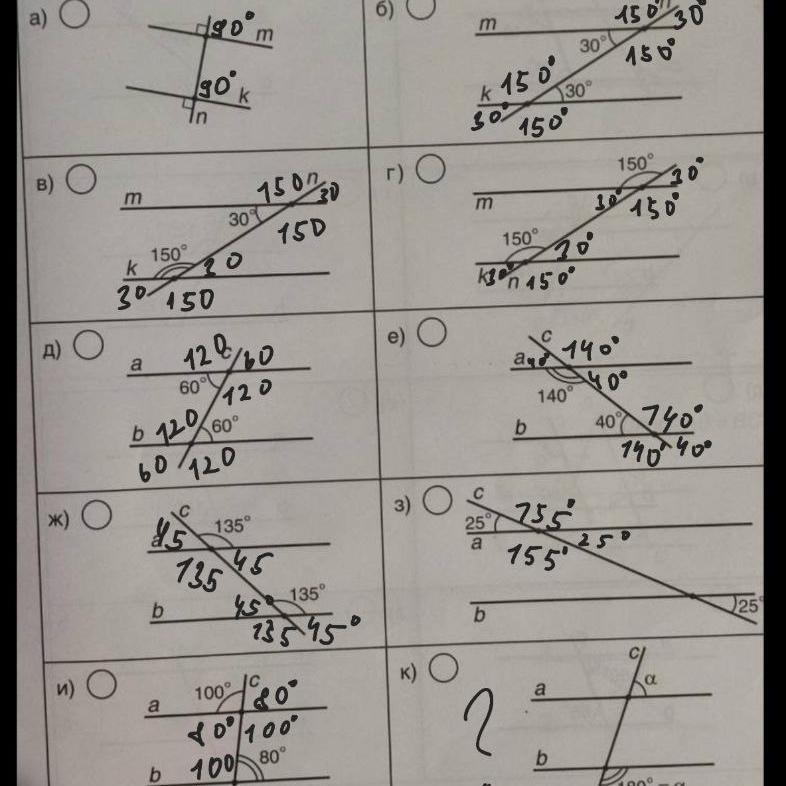 а)
90°
m
90°
k
n
б)
150°
n
30°
m
30°
150°
150°
k
30°
30°
150°
в)
150
n
30
m
30°
150
150°
k
30
30
150
г)
150°
30°
m
30°
150°
150°
30°
k
30°
n
150°
д)
120
c
60
a
60°
120
120
b
60°
60
120
е)
c
140°
a
40°
40°
140°
40°
140°
b
140°
40°
ж)
c
135°
45
a
45
135
45°
135°
b
135
45°
з)
c
25°
155°
a
155°
25°
b
25°
и)
c
100°
80°
a
80°
100°
100
80°
b
к)
c
a
α
?
b